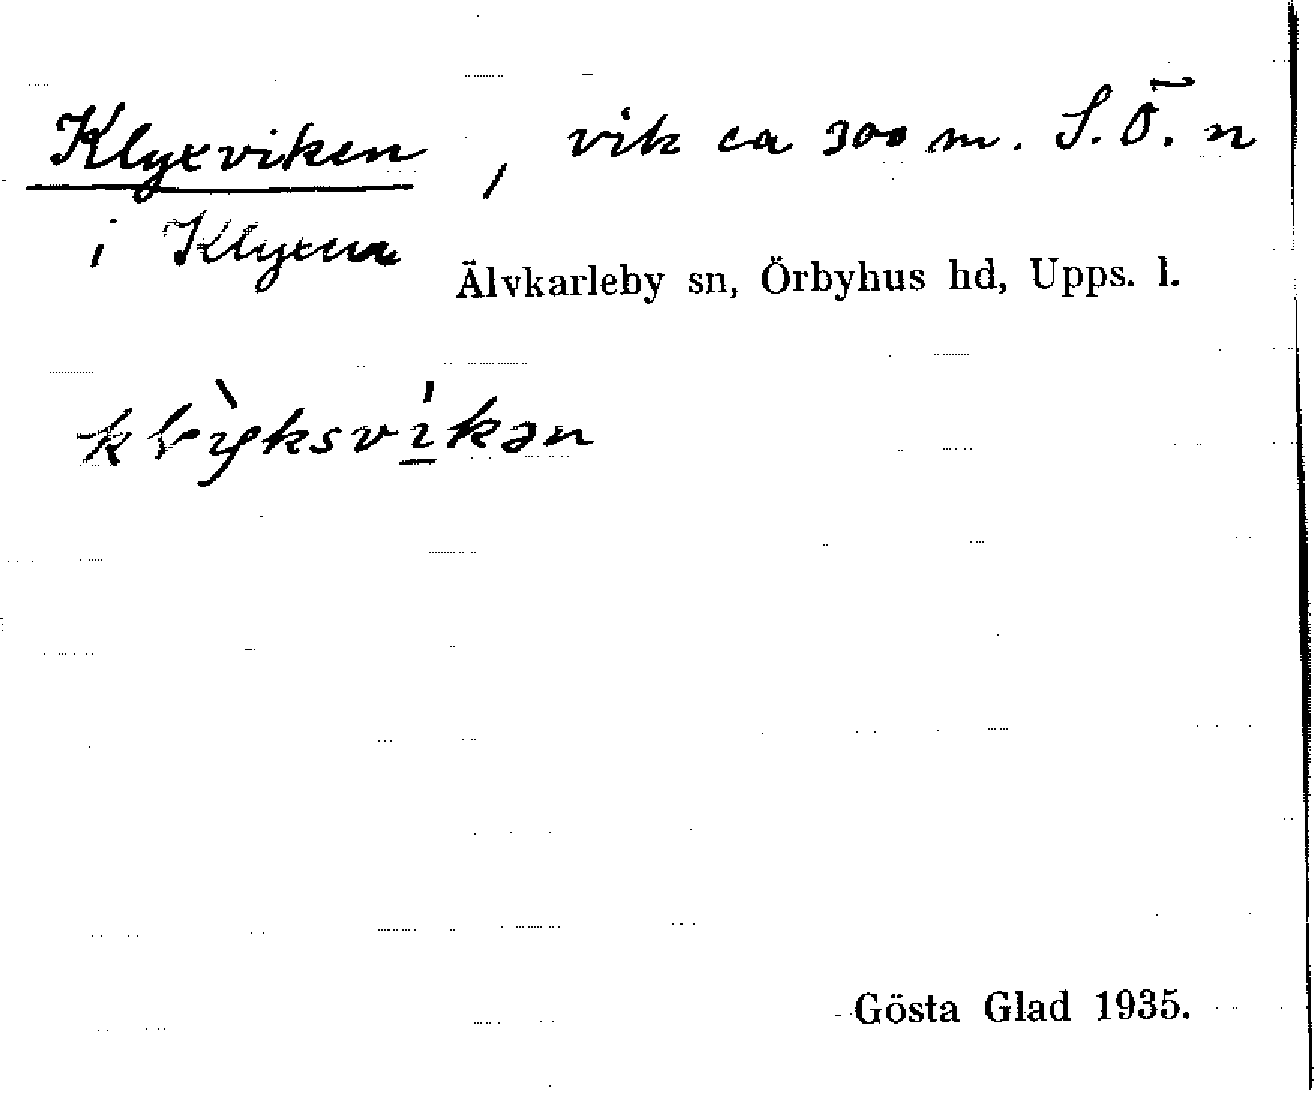 Klyxviken, vik ca 300 m. S.Ö. n
i Klyxen
Älvkarleby sn, Örbyhus hd, Upps. l.
klỳksvı̱́kən
Gösta Glad 1935.